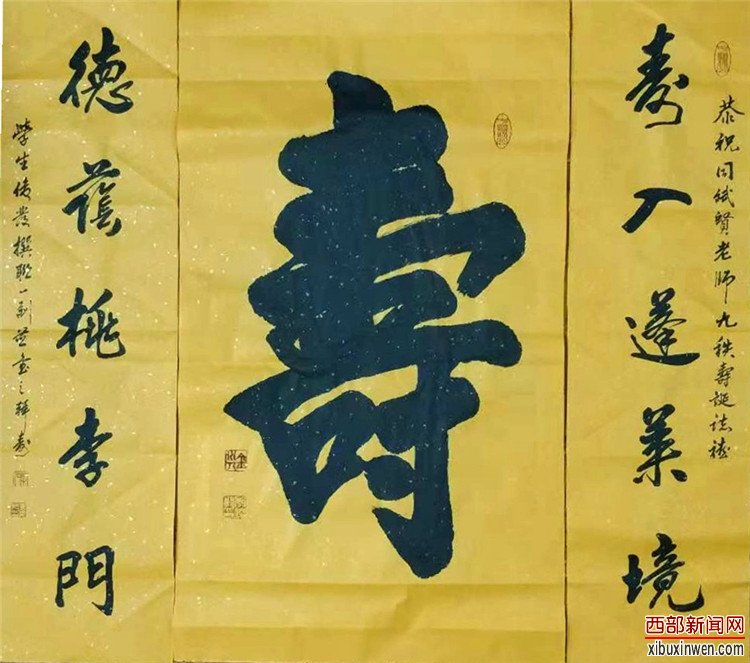 恭祝同斌賢老師九秩壽誕誌禧
壽入蓬萊境
壽
德蔭桃李門
學生發撰聯一副並書之拜壽
西部新闻网
xibuxinwen.com